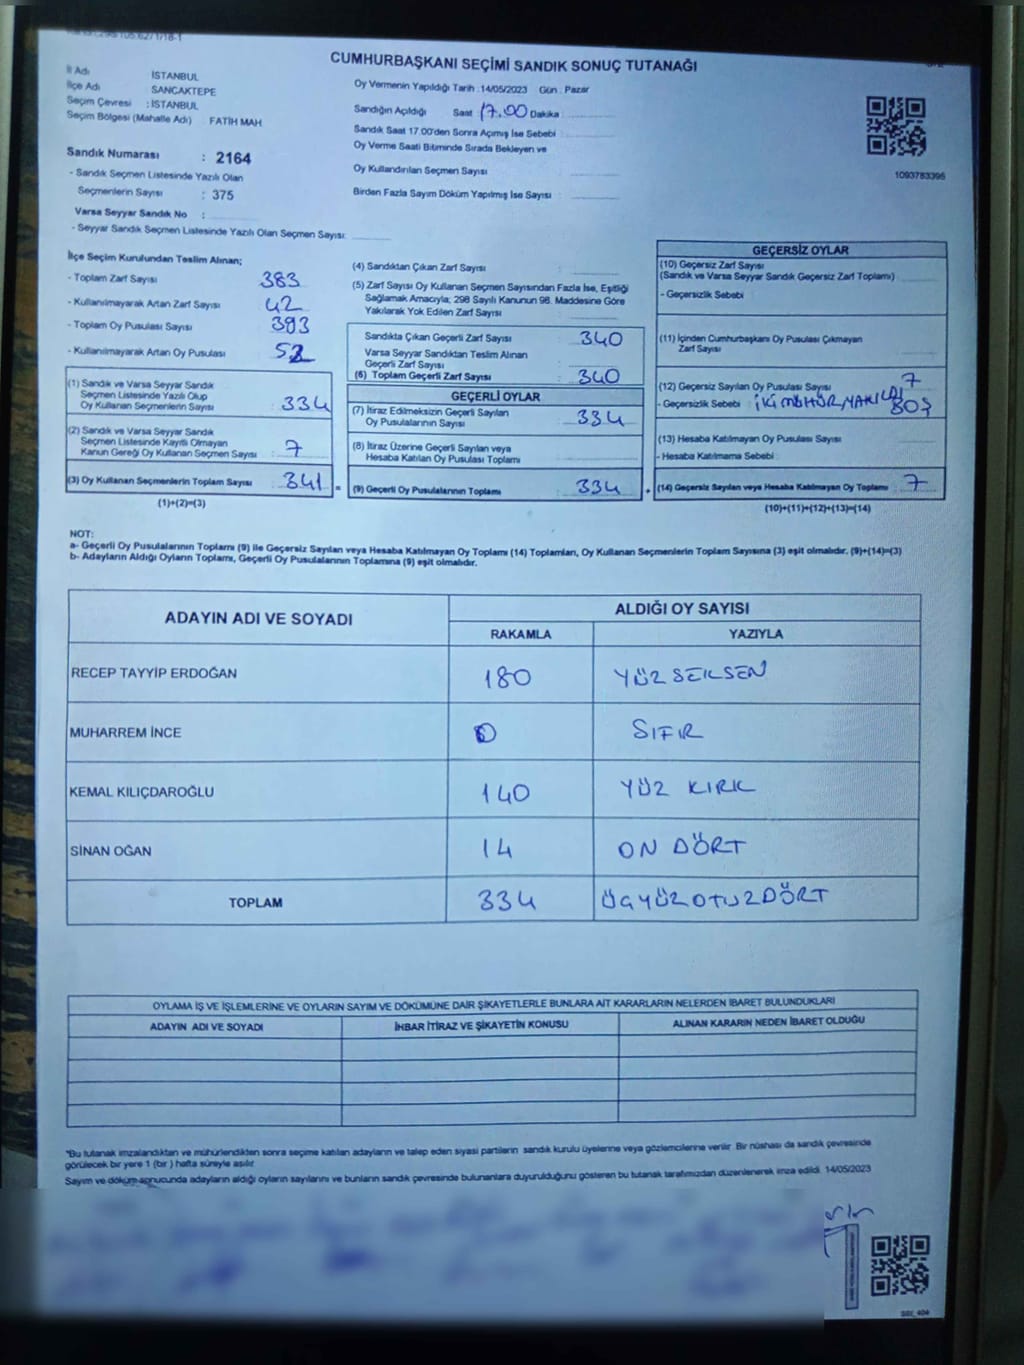 CUMHURBAŞKANI SEÇİMİ SANDIK SONUÇ TUTANAĞI
İl Adı İSTANBUL
İlçe Adı SANCAKTEPE
Seçim Çevresi : İSTANBUL
Seçim Bölgesi (Mahalle Adı) FATİH MAH
Sandık Numarası : 2164
- Sandık Seçmen Listesinde Yazılı Olan
Seçmenlerin Sayısı : 375
Varsa Seyyar Sandık No :
- Seyyar Sandık Seçmen Listesinde Yazılı Olan Seçmen Sayısı:
Oy Vermenin Yapıldığı Tarih : 14/05/2023 Gün : Pazar
Sandığın Açıldığı Saat 17.00 Dakika :
Sandık Saat 17.00'den Sonra Açılmış İse Sebebi :
Oy Verme Saati Bitiminde Sırada Bekleyen ve
Oy Kullandırılan Seçmen Sayısı
Birden Fazla Sayım Döküm Yapılmış İse Sayısı :
1093783395
İlçe Seçim Kurulundan Teslim Alınan;
- Toplam Zarf Sayısı 383
- Kullanılmayarak Artan Zarf Sayısı 42
- Toplam Oy Pusulası Sayısı 393
- Kullanılmayarak Artan Oy Pusulası 52
(1) Sandık ve Varsa Seyyar Sandık
Seçmen Listesinde Yazılı Olup
Oy Kullanan Seçmenlerin Sayısı : 334
(2) Sandık ve Varsa Seyyar Sandık
Seçmen Listesinde Kayıtlı Olmayan
Kanun Gereği Oy Kullanan Seçmen Sayısı : 7
(3) Oy Kullanan Seçmenlerin Toplam Sayısı : 341 =
(1)+(2)=(3)
(4) Sandıktan Çıkan Zarf Sayısı :
(5) Zarf Sayısı Oy Kullanan Seçmen Sayısından Fazla İse, Eşitliği
Sağlamak Amacıyla; 298 Sayılı Kanunun 98. Maddesine Göre
Yakılarak Yok Edilen Zarf Sayısı :
Sandıkta Çıkan Geçerli Zarf Sayısı : 340
Varsa Seyyar Sandıktan Teslim Alınan
Geçerli Zarf Sayısı :
(6) Toplam Geçerli Zarf Sayısı : 340
GEÇERLİ OYLAR
(7) İtiraz Edilmeksizin Geçerli Sayılan
Oy Pusulalarının Sayısı : 334
(8) İtiraz Üzerine Geçerli Sayılan veya
Hesaba Katılan Oy Pusulası Toplamı :
(9) Geçerli Oy Pusulalarının Toplamı : 334 +
GEÇERSİZ OYLAR
(10) Geçersiz Zarf Sayısı
(Sandık ve Varsa Seyyar Sandık Geçersiz Zarf Toplamı) :
- Geçersizlik Sebebi :
(11) İçinden Cumhurbaşkanı Oy Pusulası Çıkmayan
Zarf Sayısı
(12) Geçersiz Sayılan Oy Pusulası Sayısı 7
- Geçersizlik Sebebi : İKİ MÜHÜR
BOŞ
(13) Hesaba Katılmayan Oy Pusulası Sayısı :
- Hesaba Katılmama Sebebi :
(14) Geçersiz Sayılan veya Hesaba Katılmayan Oy Toplamı : 7
(10)+(11)+(12)+(13)=(14)
NOT:
a- Geçerli Oy Pusulalarının Toplamı (9) ile Geçersiz Sayılan veya Hesaba Katılmayan Oy Toplamı (14) Toplamları, Oy Kullanan Seçmenlerin Toplam Sayısına (3) eşit olmalıdır. (9)+(14)=(3)
b- Adayların Aldığı Oyların Toplamı, Geçerli Oy Pusulalarının Toplamına (9) eşit olmalıdır.
ADAYIN ADI VE SOYADI ALDIĞI OY SAYISI
RAKAMLA YAZIYLA
RECEP TAYYİP ERDOĞAN 180 YÜZ SEKSEN
MUHARREM İNCE 0 SIFIR
KEMAL KILIÇDAROĞLU 140 YÜZ KIRK
SİNAN OĞAN 14 ON DÖRT
TOPLAM 334 ÜÇYÜZOTUZDÖRT
OYLAMA İŞ VE İŞLEMLERİNE VE OYLARIN SAYIM VE DÖKÜMÜNE DAİR ŞİKAYETLERLE BUNLARA AİT KARARLARIN NELERDEN İBARET BULUNDUKLARI
ADAYIN ADI VE SOYADI İHBAR İTİRAZ VE ŞİKAYETİN KONUSU ALINAN KARARIN NEDEN İBARET OLDUĞU
"Bu tutanak imzalandıktan ve mühürlendikten sonra seçime katılan adayların ve talep eden siyasi partilerin sandık kurulu üyelerine veya gözlemcilerine verilir. Bir nüshası da sandık çevresinde
görülecek bir yere 1 (bir) hafta süreyle asılır.
Sayım ve döküm sonucunda adayların aldığı oyların sayılarını ve bunların sandık çevresinde bulunanlara duyurulduğunu gösteren bu tutanak tarafımızdan düzenlenerek imza edildi. 14/05/2023